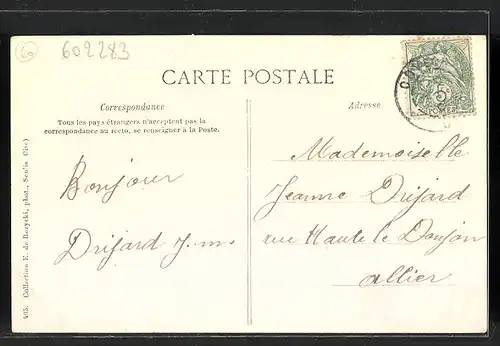 60
602283
CARTE POSTALE
Correspondance
Tous les pays étrangers n'acceptent pas la
correspondance au recto, se renseigner à la Poste.
Bonjour
Drifard J.m.
Adresse
5c
Mademoiselle
Jeanne Drifard
rue Haute le Donjon
Allier
405. Collection E. de Rozycki, phot., Senlis (Oise)